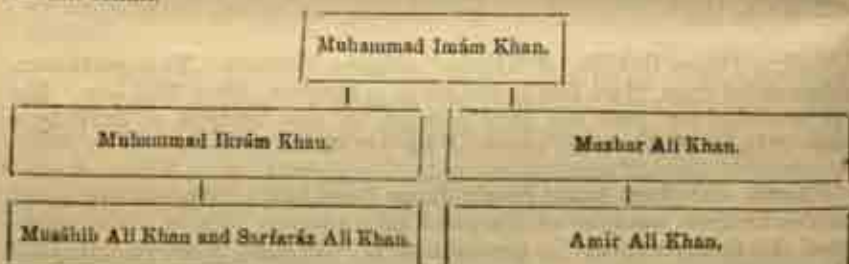 Muhammad Imám Khan.
Muhammad Ikrám Khan.
Mazhar Ali Khan.
Musáhib Ali Khan and Sarfaráz Ali Khan.
Amir Ali Khan.